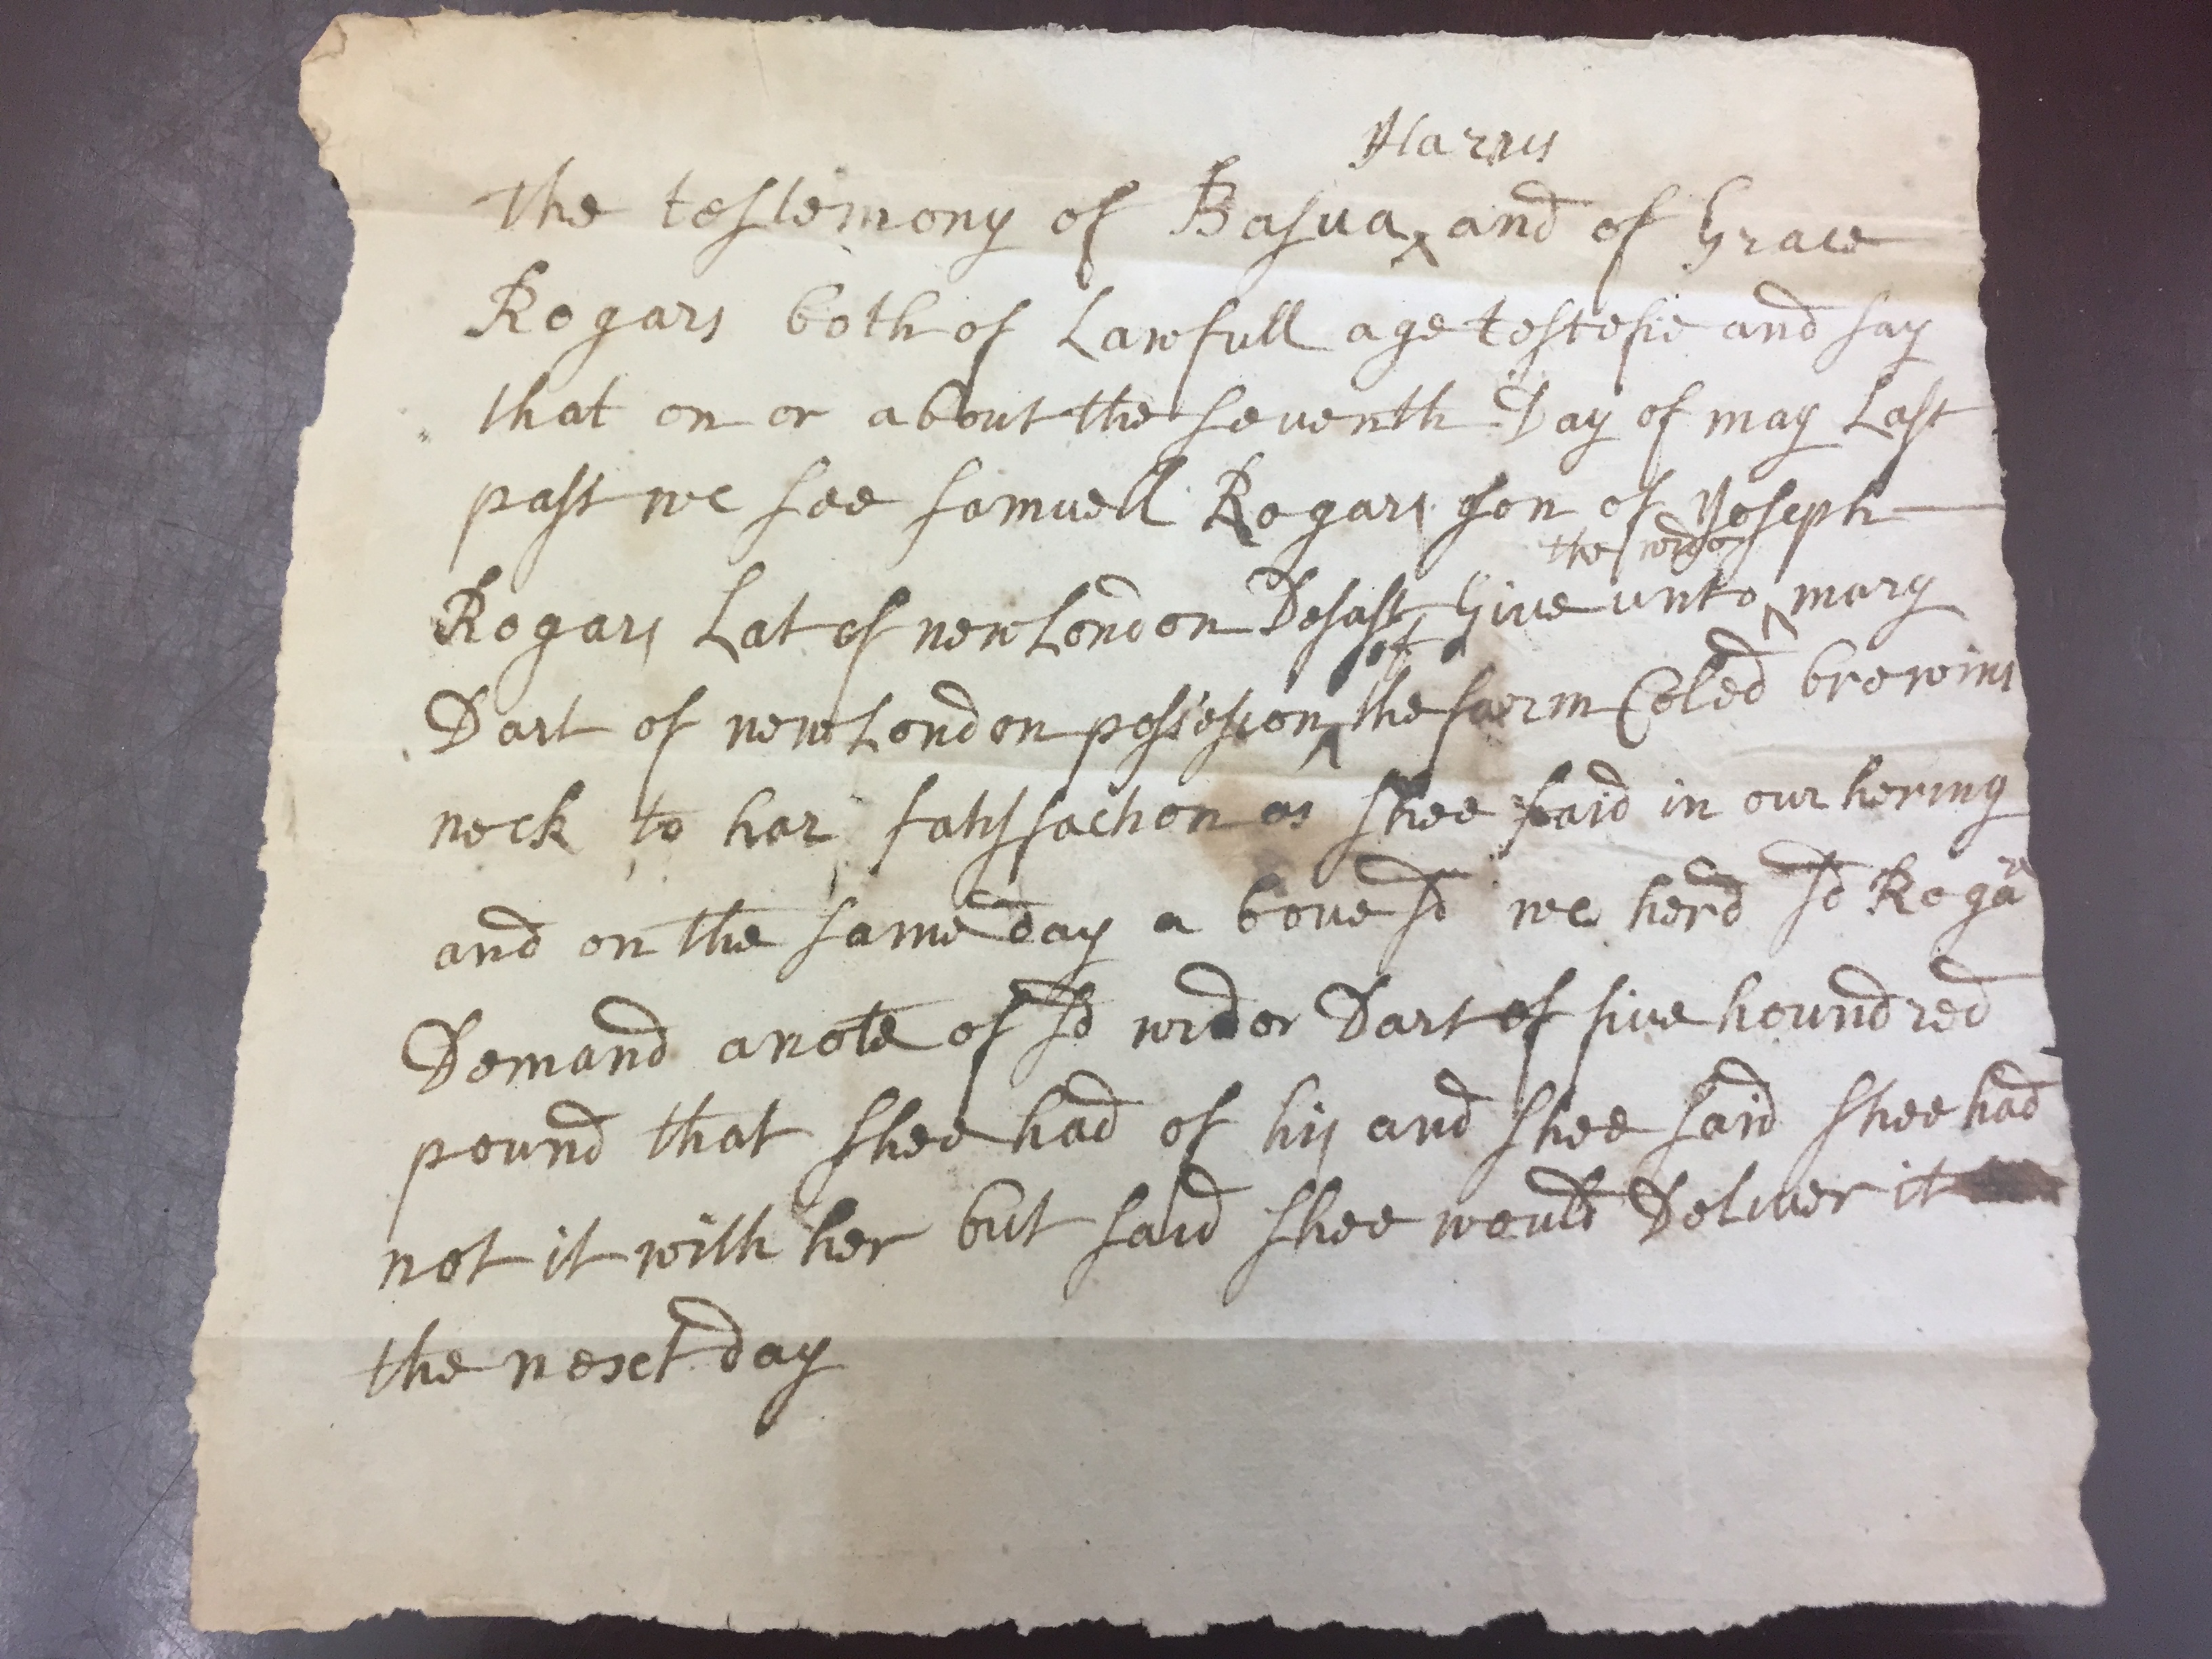 Harris
The testemony of Basua ^ and of Grace
Rogars both of Lawfull age testefie and say
that on or about the seventh Day of may Last
past we see samuell Rogars son of Joseph
the wido
Rogars Lat of newLondon Desast Give unto ^ mary
of
Dart of newLondon possession ^ the farm Coled brewins
neck to har satissfaction as shee said in our hering
and on the same day a bove sd we herd sd Rogars
Demand a note of sd widor Dart of five houndred
pound that shee had of his and shee said shee had
not it with her but said shee would Deliver it
the nexct day